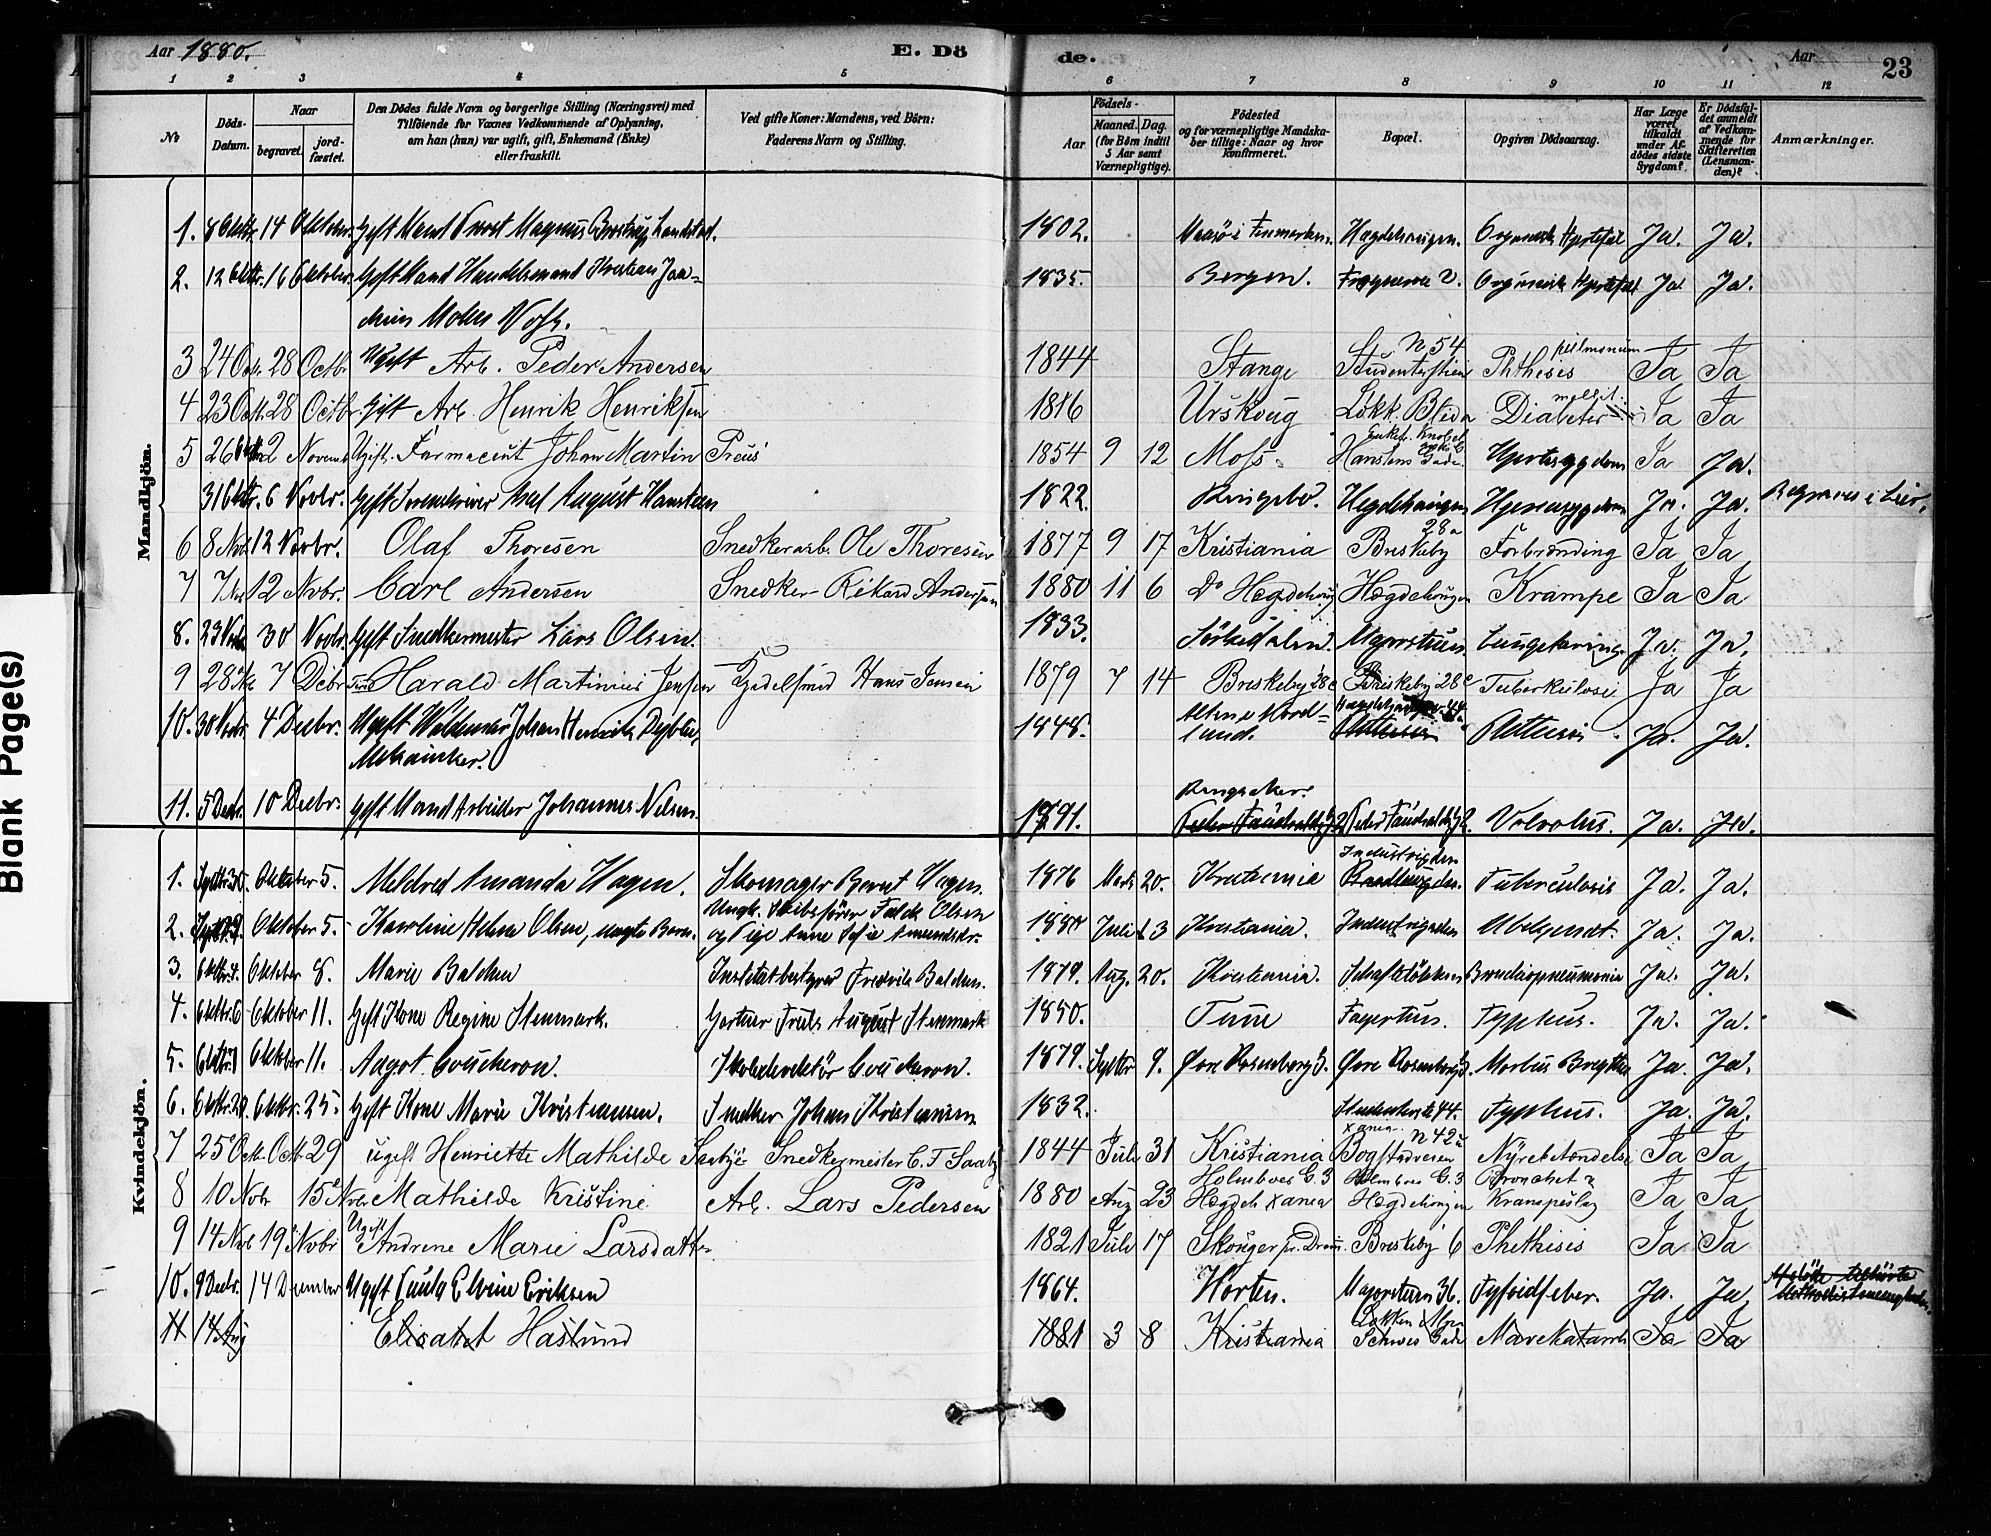 Aar 1880.
E. Dö
de.
Aar
23
1 2 3 4 5 6 7 8 9 10 11 12
No
Döds-Datum.
Naar
begravet.
jord-fæstet.
Den Dödes fulde Navn og borgerlige Stilling (Næringsvei) med
Tilföiende for Voxnes Vedkommende af Oplysning,
om han (hun) var ugift, gift, Enkemand (Enke)
eller fraskilt.
Ved gifte Koner: Mandens, ved Börn:
Faderens Navn og Stilling.
Födsels-
Aar
Maaned. Dag.
(for Børn indtil
5 Aar samt
Værnepligtige).
Födested
og for værnepligtige Mandska-
ber tillige: Naar og hvor
konfirmeret.
Bopæl.
Opgiven Dödsaarsag.
Har Læge
været
tilkaldt
under Af-
dödes sidste
Sygdom?
Er Dödsfal-
det anmeldt
af Vedkom-
mende for
Skifteretten
(Lensman-
den)?
Anmærkninger.
Mandkjön.
1. 8 Oktbr. 14 Oktober Gift Mand Provst Magnus Brostrup Landstad. 1802. Maasö i Finmarken. Hægdehaugen. Organisk Hjertefeil Ja. Ja.
2. 12 Oktbr. 16 Oktober Gift Mand Handelsmand Kristian Joa- 1835. Bergen. Organisk Hjertefeil Ja Ja.
chim Mohn
3 24 Octb. 28 Octbr Ugift Arb. Peder Andersen 1844 Stange Studenterstien N 54 Phthisis pulmonum Ja Ja
4 23 Oct. 28 Octbr. Gift Arb Henrik Henriksen 1816 Urskoug Lökk. Blida Diabetes mellit. Ja Ja
5 26 2 Novemb Ugift. Farmaceut Johan Martin Preus 1854 9 12 Moss Hanstens Gade. Hjertesygdom Ja Ja.
31 Oktbr. 6 Novbr. Gift Sorenskriver August Hansteen 1822. Ringebo. Hegdehaugen Hjernesygdom Ja. Ja. Begraves i Lier.
6 8 Nov 12 Novbr. Olaf Thoresen Snedkerarb. Ole Thoresen 1877 9 17 Kristiania Briskeby 28a Forbrænding Ja Ja
7 7 Nov 12 Nvbr. Carl Andersen Snedker Rikard Andersen 1880 11 6 Do Hægdehaug Hægdehougen Krampe Ja Ja
8. 23 Novbr 30 Novbr. Gift Snedkermester Lars Olsen. 1833. Sörkedalen. Majorstuen. Ja. Ja.
9 28 7 Dcbr Harald Martinius Jensen Hans Jensen 1879 7 14 Briskeby 28c Briskeby 28c Tuberkulose Ja Ja
10. 30 Novbr. 4 Decbr. Ugift Waldemar Johan Henrik 1848. Alten i Nord- Phthisis Ja. Ja.
Mekaniker. land.
11. 5 Decbr. 10 Decbr. Gift Mand Arbeider Johannes Nilsen. Ringsaker. Volvolus. Ja. Ja.
Kvindekjön.
1. Septbr 30. Oktober 5. Meldred Amanda Hagen. Skomager Bernt Hagen. 1876 Marts 20. Kristiania Industrigaden Tuberculosis Ja. Ja.
2. Oktober 5. Karoline Helene Olsen, uægte Barn. Ungk. Skibsförer Falck Olsen 1880 Juli 13 Kristiania. Industrigaden Ja. Ja.
og Pige Anne Sofie Amundsdr.
3. Oktbr. 4. Oktober 8. Marie Balchen Institutbestyrer Fredrik Balchen. 1879. Aug. 20. Kristiania. Schafteløkken Bronchiopneumonia Ja. Ja.
4. Oktbr 6 Oktober 11. Gift Kone Regine Stenmark. Gartner August Stenmark 1850. Tune Fagertun. Typhus. Ja. Ja.
5. Oktober 11. Aagot Coucheron. Skoledirektör Coucheron. 1879. Septbr 9. Övre Rosenborg 3. Övre Rosenborg 3. Morbus Brigthii Ja. Ja.
6. Oktbr. 20 Oktbr. 25. Gift Kone Marie Kristiansen. Snedker Johan Kristiansen 1832. Studenterst. 44. Typhus. Ja. Ja.
7 25 Oct. Oct 29 ugift Henriette Mathilde Saabye Snedkermester C. F. Saaby 1844 Juli 31 Kristiania Bogstadveien N 42 Nyrebetændelse Ja Ja
8 10 Nvbr 15 Nvbr Mathilde Kristine Arb. Lars Pedersen 1880 Aug 23 Holmboes G. 3 Hægdeh Xania Holmboes G. 3 Hægdehougen Bronchit & Krampeslag Ja Ja
9 14 Nvb 19 Nvbr Ugift Andrine Marie Larsdatter 1821 Juli 17 Skouger pr. Dram. Briskeby 6 Phthisis Ja Ja
10. 9 Decbr. 14 December Ugift Paula Elvine Eriksen 1864. Horten. Majorstuen 36. Tyfoidfeber. Ja. Ja.
11 14 Aug Elisabet Haslund 1881 3 8 Kristiania Løkken Schwes Gade Mavekatarrh Ja Ja
Blank Page(s)